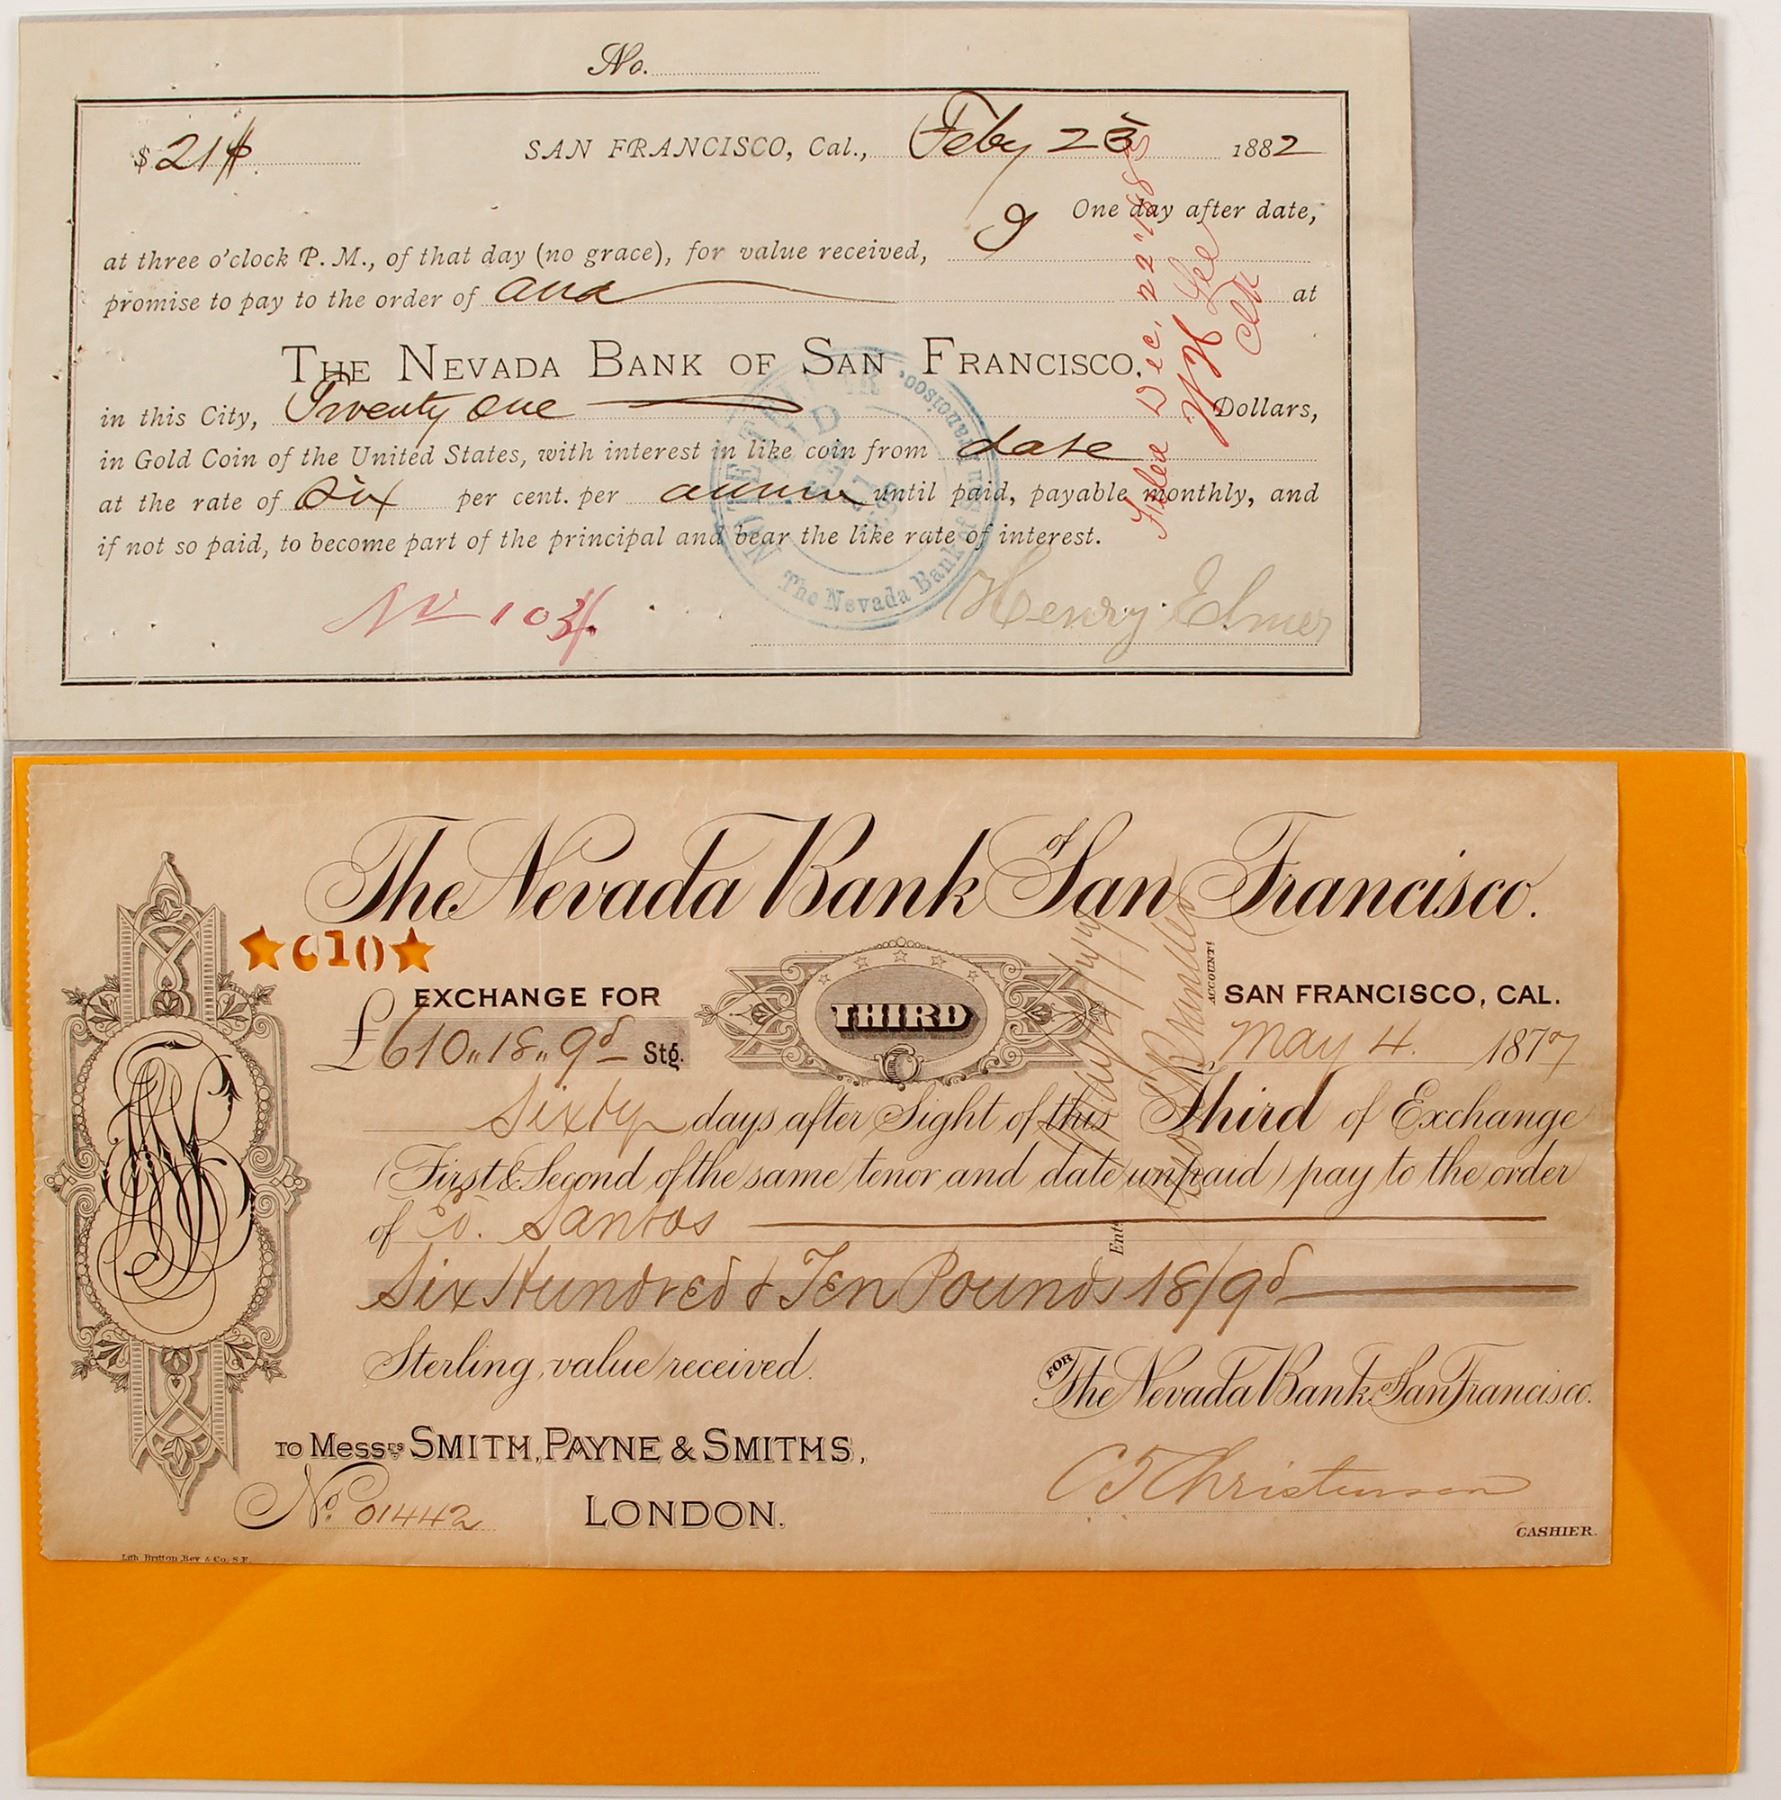 No.
$ 21 SAN FRANCISCO, Cal., Feby 23 1882
I One day after date,
at three o'clock P. M., of that day (no grace), for value received,
promise to pay to the order of at
THE NEVADA BANK OF SAN FRANCISCO,
in this City, Twenty One Dollars,
in Gold Coin of the United States, with interest in like coin from date
at the rate of Six per cent. per annum until paid, payable monthly, and
if not so paid, to become part of the principal and bear the like rate of interest.
Henry Elmer
The Nevada Bank of San Francisco.
Filed Dec. 22
Lee
Clk
The Nevada Bank of San Francisco.
★610★
EXCHANGE FOR
THIRD
SAN FRANCISCO, CAL.
£610,,18,,9d Stg.
May 4. 1877
Sixty days after Sight of this Third of Exchange
(First & Second of the same tenor and date unpaid) pay to the order
of Santos
Six Hundred & Ten Pounds 18/9d
Sterling, value received.
FOR The Nevada Bank of San Francisco.
TO Messrs SMITH, PAYNE & SMITHS,
No. 01442 LONDON.
Christensen
CASHIER.
Lith. Britton, Rey & Co. S.F.
ACCOUNT!
Entd